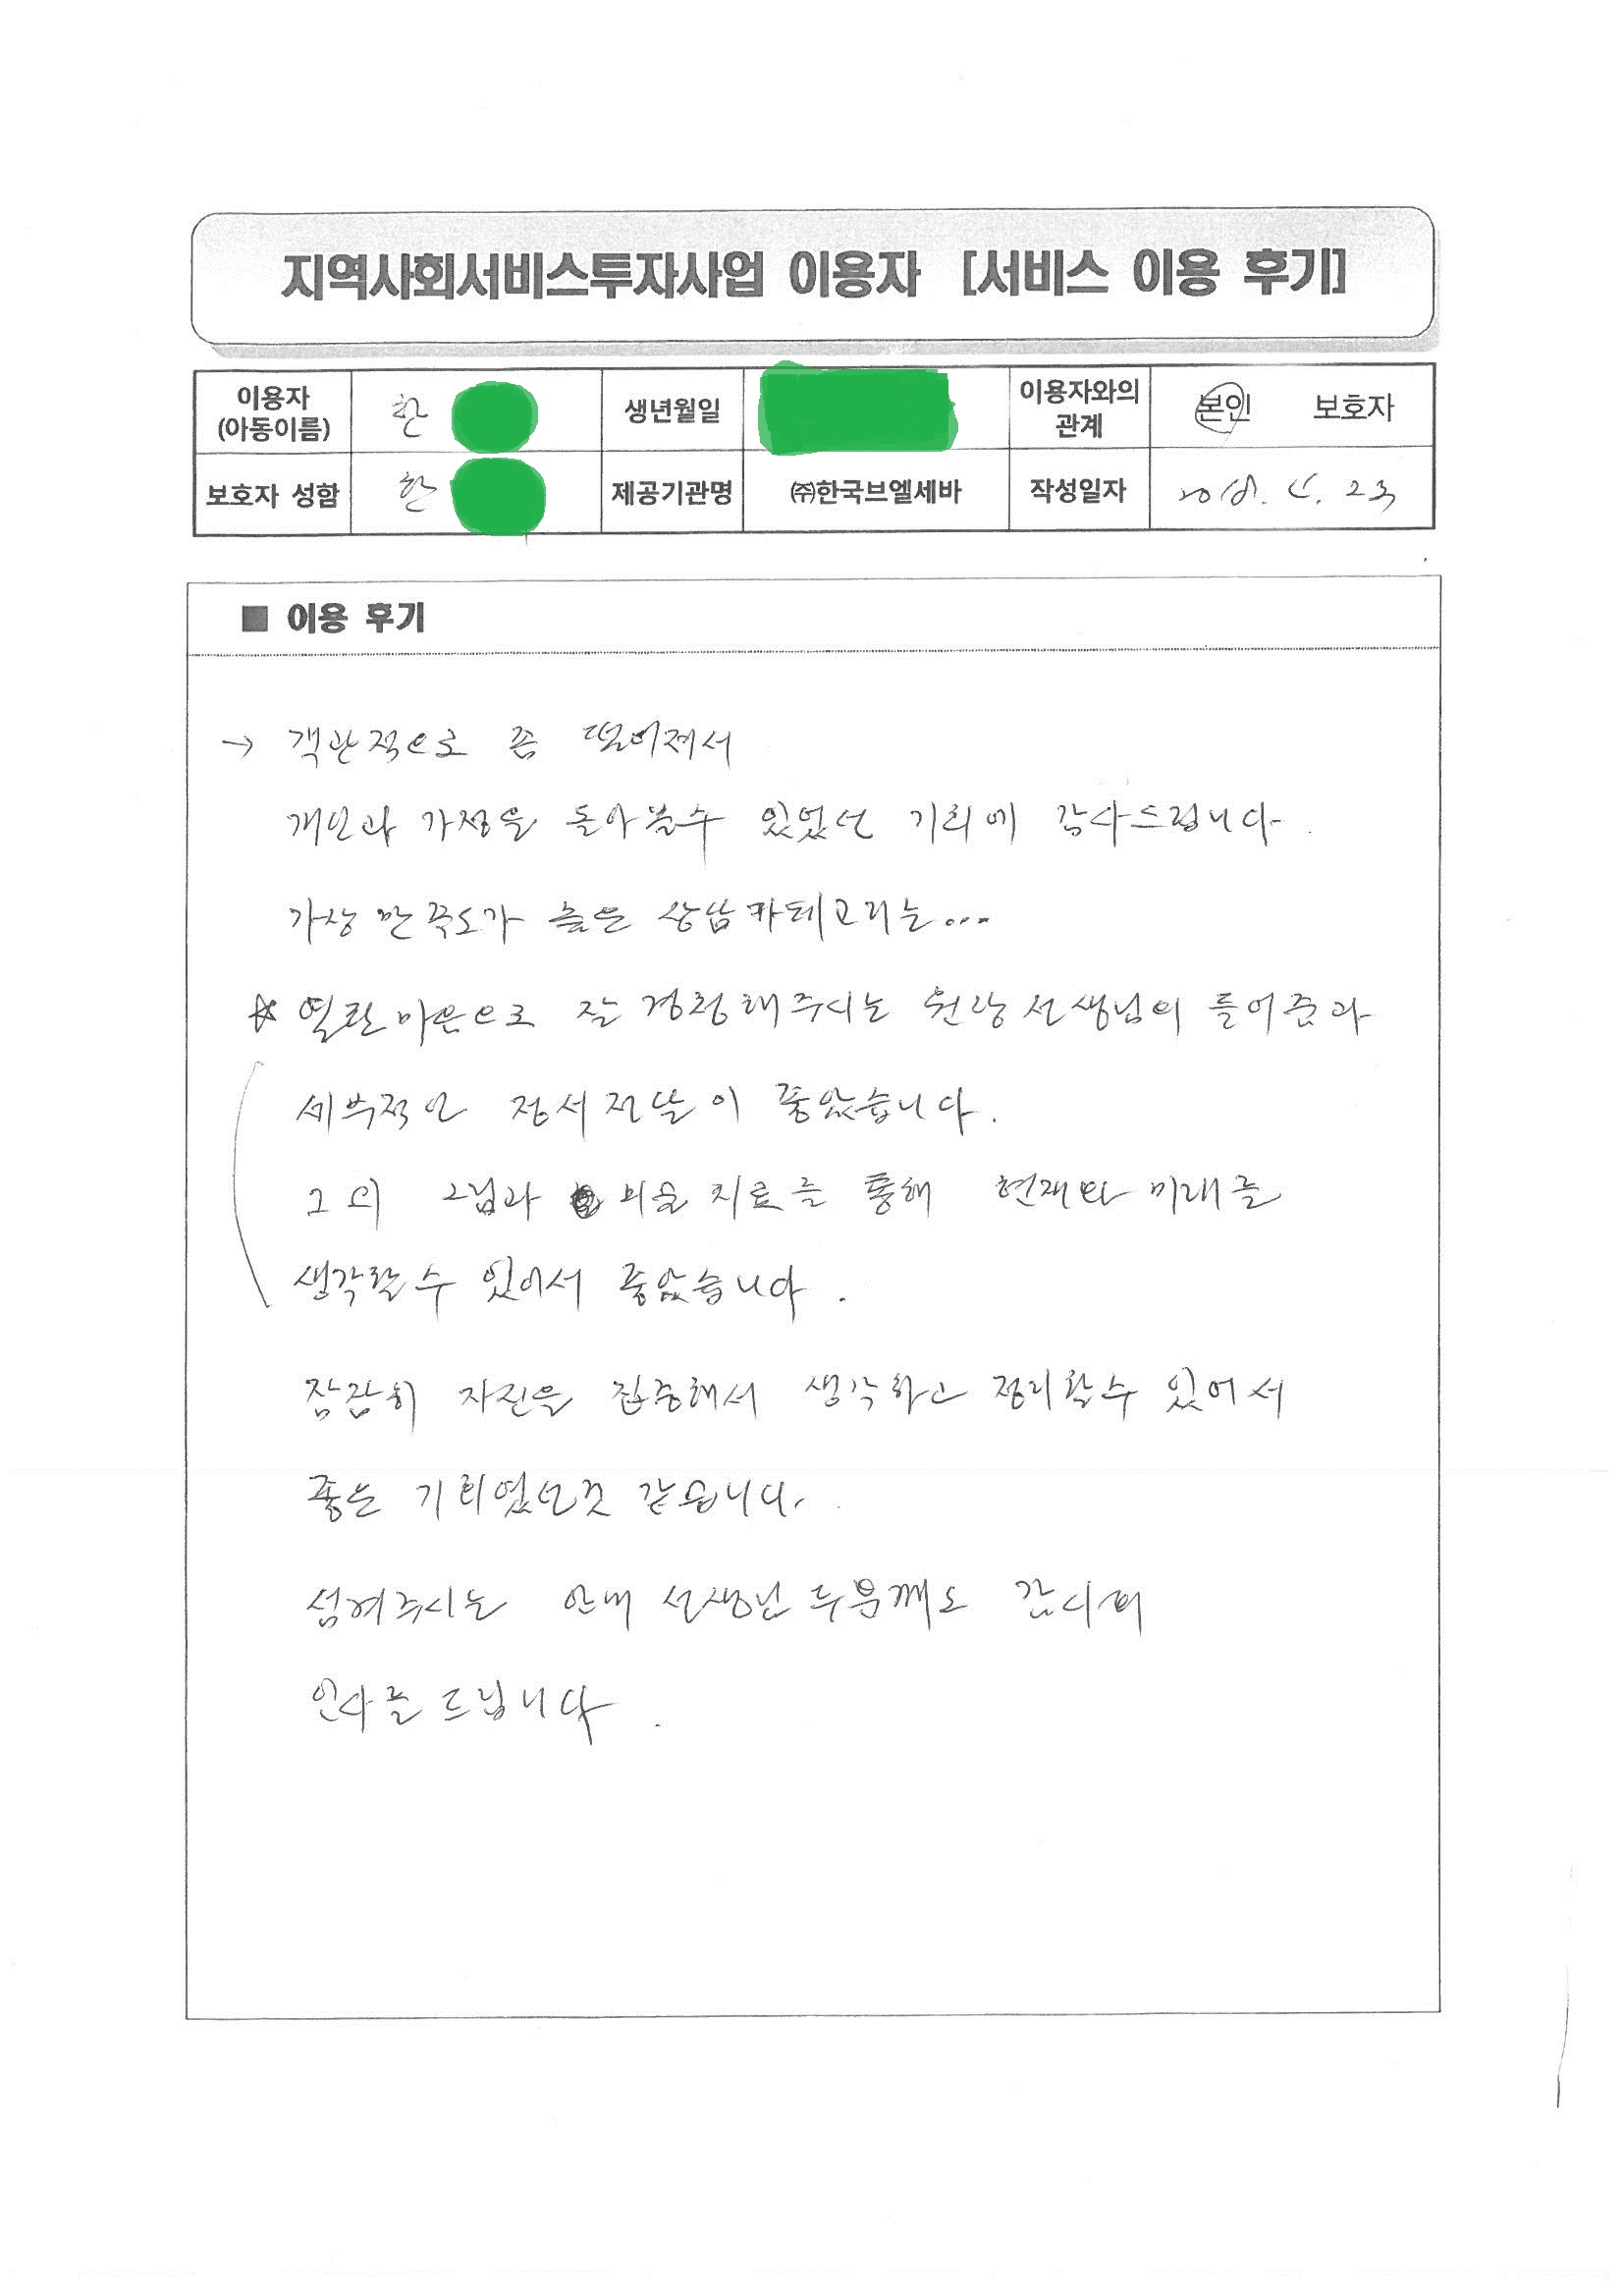 지역사회서비스투자사업 이용자 [서비스 이용 후기]
이용자 (아동이름) 한 생년월일 이용자와의 관계 본인 보호자
보호자 성함 한 제공기관명 ㈜한국브엘세바 작성일자 2018. 5. 23
■ 이용 후기
→ 객관적으로 좀 떨어져서
개인과 가정을 돌아볼수 있었던 기회에 감사드립니다.
가장 만족도가 높은 상담카테고리는...
☆ 열린마음으로 잘 경청해주시는 원장선생님의 들어줌과
세부적인 정서전달이 좋았습니다.
그외 그림과 미술치료를 통해 현재와 미래를
생각할수 있어서 좋았습니다.
잠잠히 자신을 집중해서 생각하고 정리할수 있어서
좋은 기회였던것 같습니다.
섬겨주시는 안내 선생님 두분께도 감사의
인사를 드립니다.